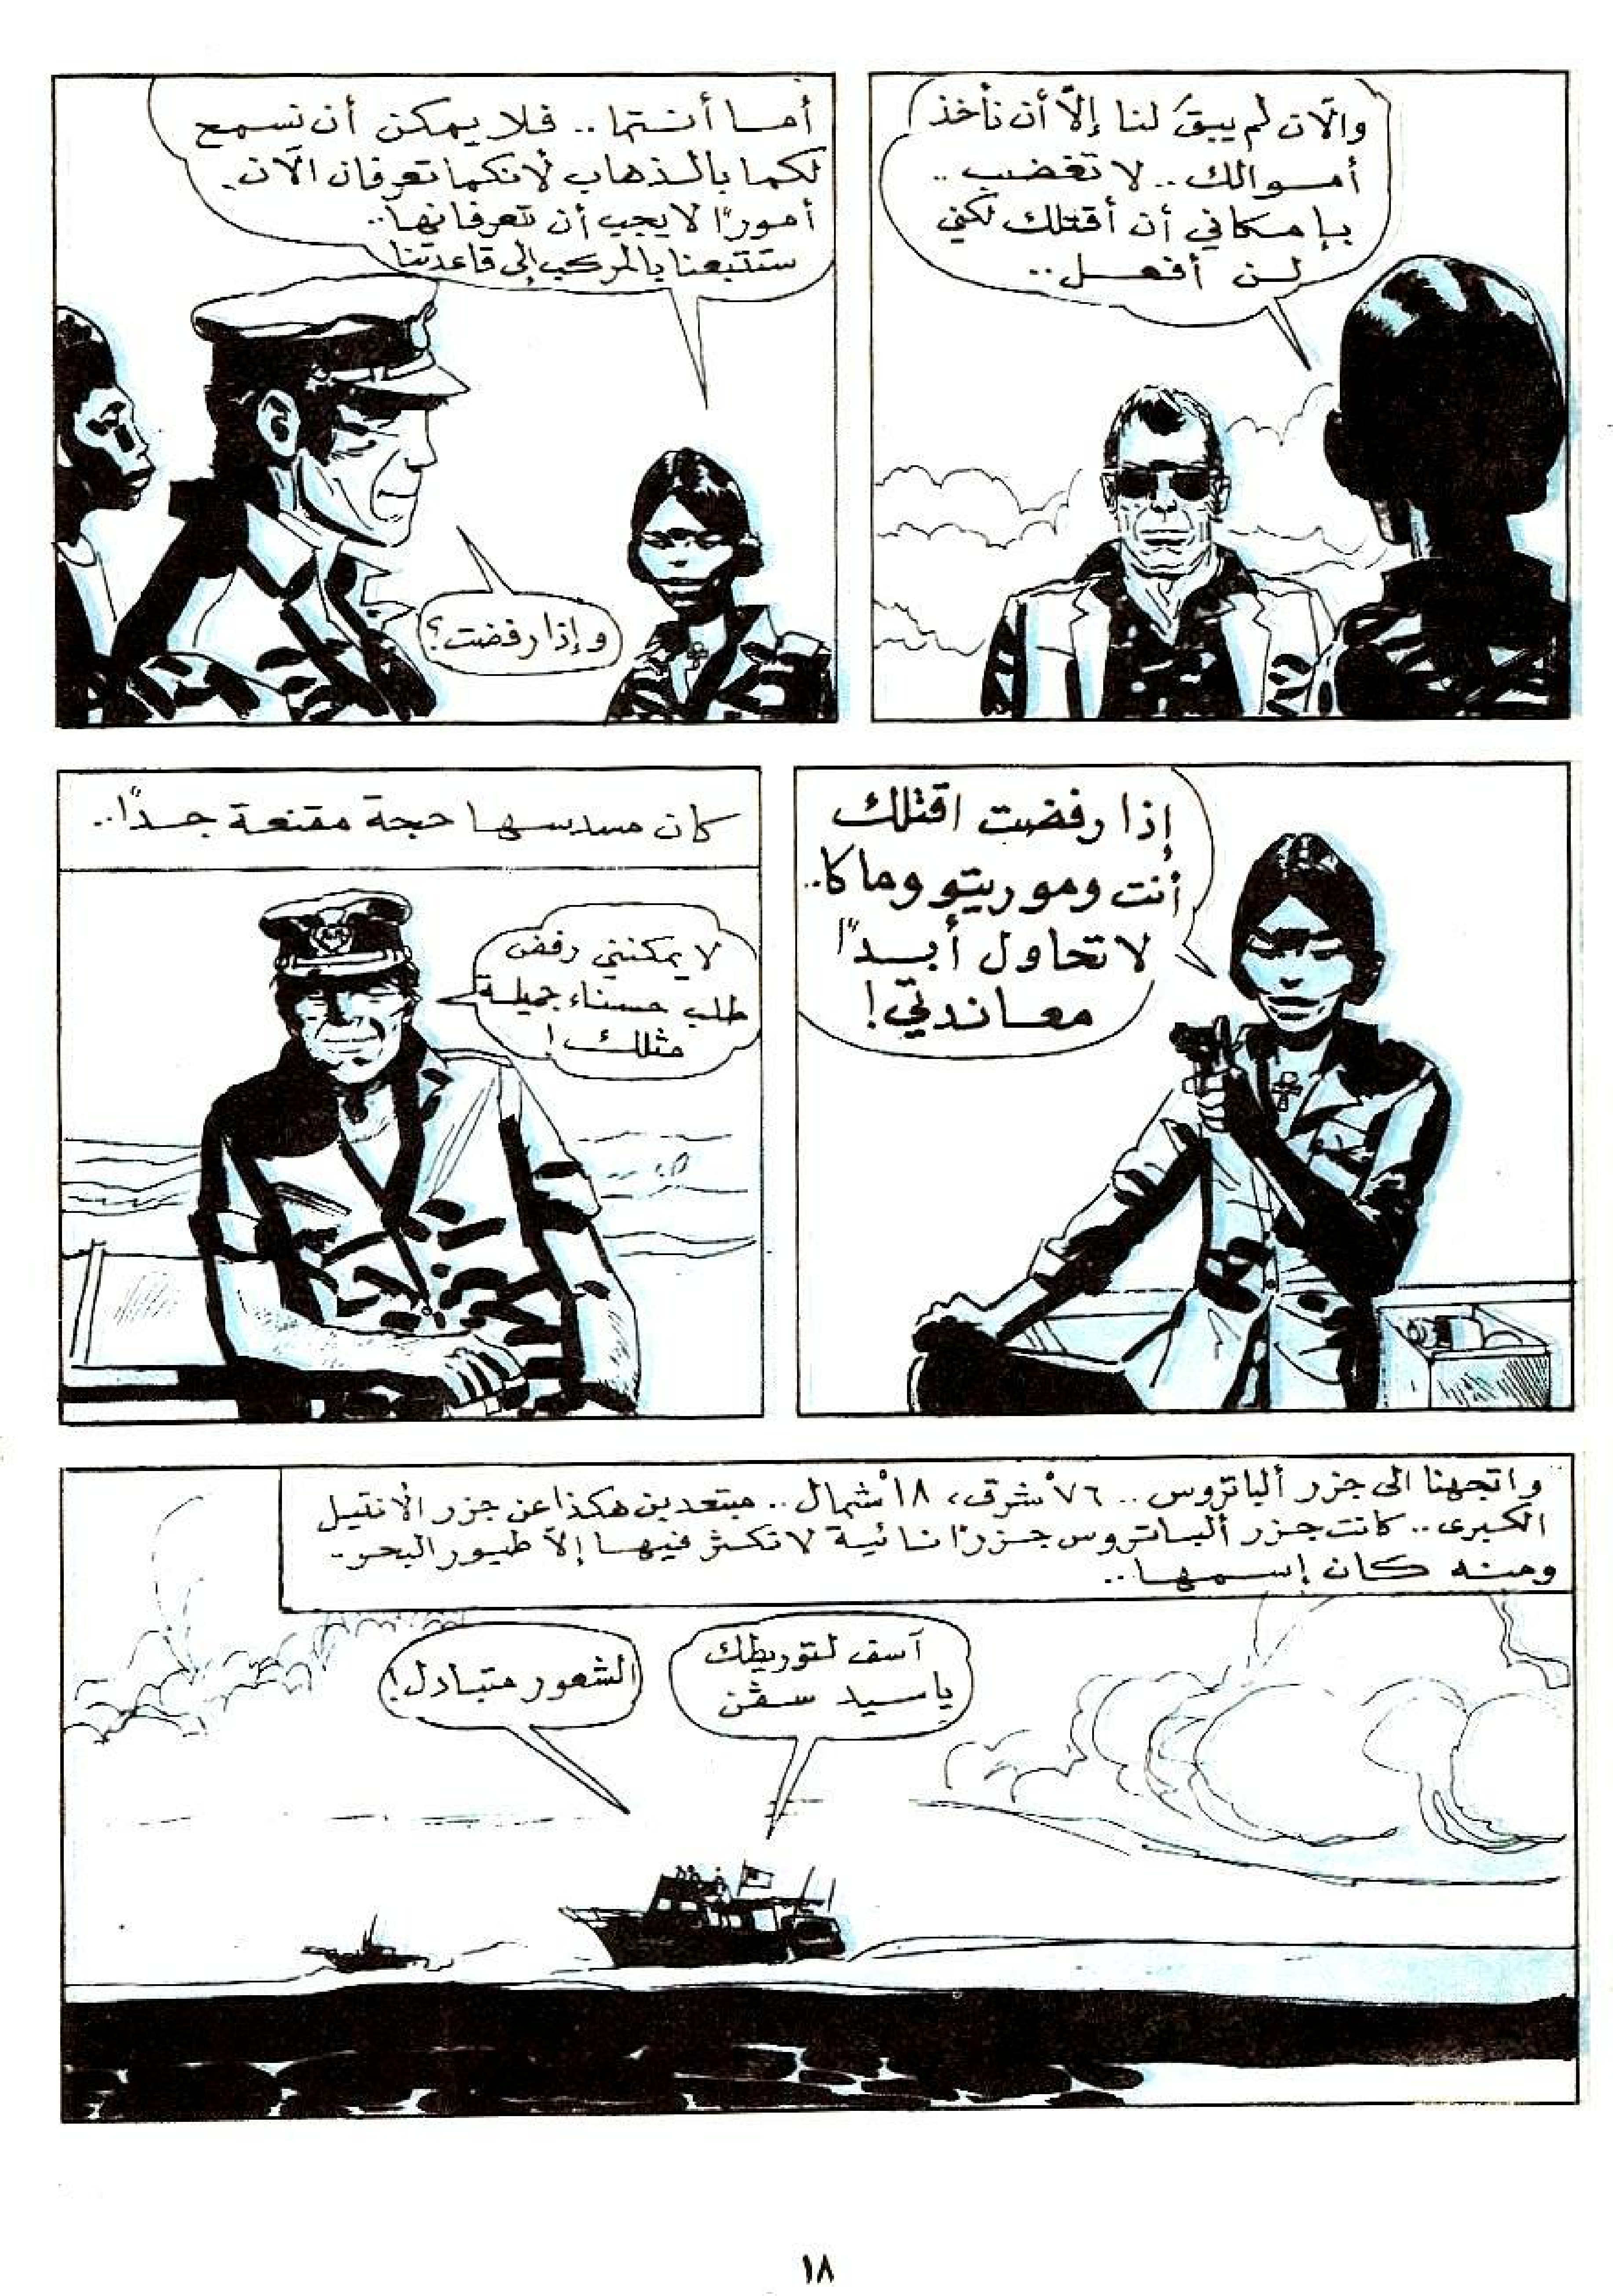 والآن لم يبقَ لنا إلاّ أن نأخذ
أموالك.. لا تغضب..
بإمكاني أن أقتلك لكني
لن أفعل..
أما أنتما.. فلا يمكن أن نسمح
لكما بالذهاب لأنكما تعرفان الآن
أمورًا لا يجب أن تعرفانها..
ستتبعنا بالمركب إلى قاعدتنا
و إذا رفضت؟
إذا رفضت اقتلك
أنت وموريتو وماكا..
لا تحاول أبدًا
معاندتي!
كان مسدسها حجة مقنعة جدًا..
لا يمكنني رفض
طلب حسناء جميلة
مثلك!
واتجهنا الى جزر ألباتروس .. ٧٦° شرق، ١٨° شمال.. مبتعدين هكذا عن جزر الأنتيل
الكبرى.. كانت جزر ألباتروس جزرًا نائية لا تكثر فيها إلاّ طيور البحر..
ومنه كان إسمها..
آسف لتوريطك
يا سيد سڤن
الشعور متبادل!
١٨